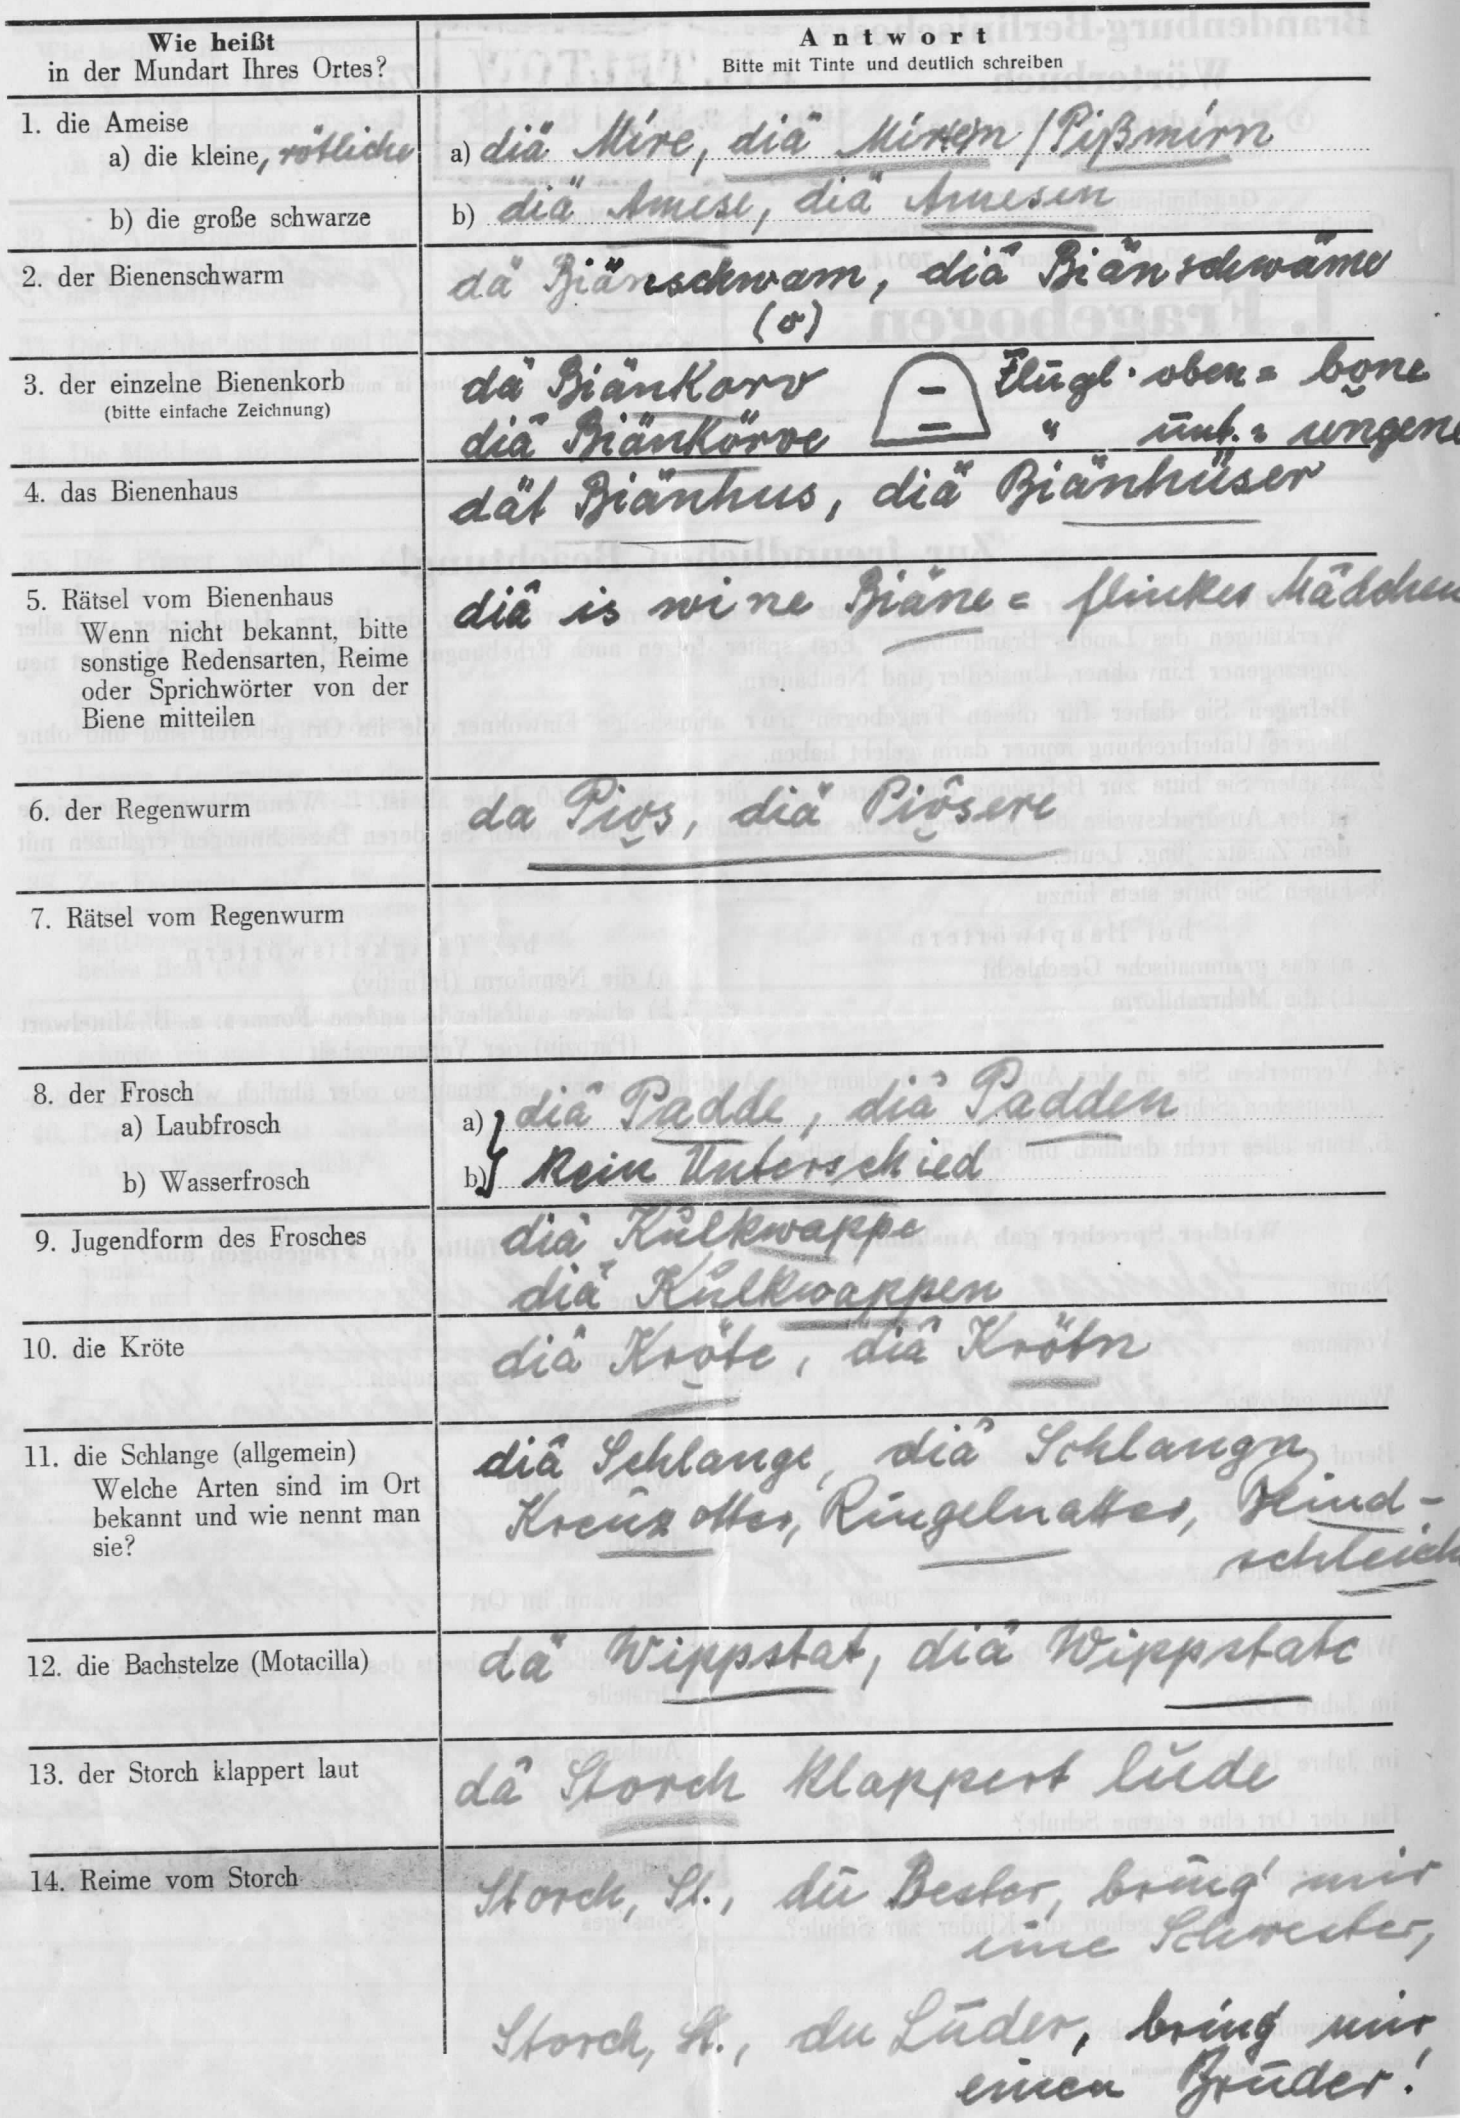 Wie heißt
in der Mundart Ihres Ortes?
Antwort
Bitte mit Tinte und deutlich schreiben
1. die Ameise
a) die kleine, rötliche
a) diä Mire, diä Mirn / Pißmirn
b) die große schwarze
b) diä Amese, diä Amesen
2. der Bienenschwarm
dä Biänschwam, diä Biänschwäme
(o)
3. der einzelne Bienenkorb
(bitte einfache Zeichnung)
dä Biänkorv Flügl. oben = bone
diä Biänkörve " unt. = ungene
4. das Bienenhaus
dät Biänhus, diä Biänhüser
5. Rätsel vom Bienenhaus
Wenn nicht bekannt, bitte
sonstige Redensarten, Reime
oder Sprichwörter von der
Biene mitteilen
diä is wi ne Biäne = flinkes Mädchen
6. der Regenwurm
da Pios, diä Piösere
7. Rätsel vom Regenwurm
8. der Frosch
a) Laubfrosch
a) diä Padde, diä Padden
b) Wasserfrosch
b) Kein Unterschied
9. Jugendform des Frosches
diä Kulkwappe
diä Kulkwappen
10. die Kröte
diä Kröte, diä Krötn
11. die Schlange (allgemein)
Welche Arten sind im Ort
bekannt und wie nennt man
sie?
diä Schlange, diä Schlangn
Kreuzotter, Ringelnatter, Blind-
schleich
12. die Bachstelze (Motacilla)
dä Wippstat, diä Wippstate
13. der Storch klappert laut
dä Storch klappert lude
14. Reime vom Storch
Storch, St., du Bester, bring' mir
eine Schwester,
Storch, St., du Luder, bring' mir
einen Bruder!